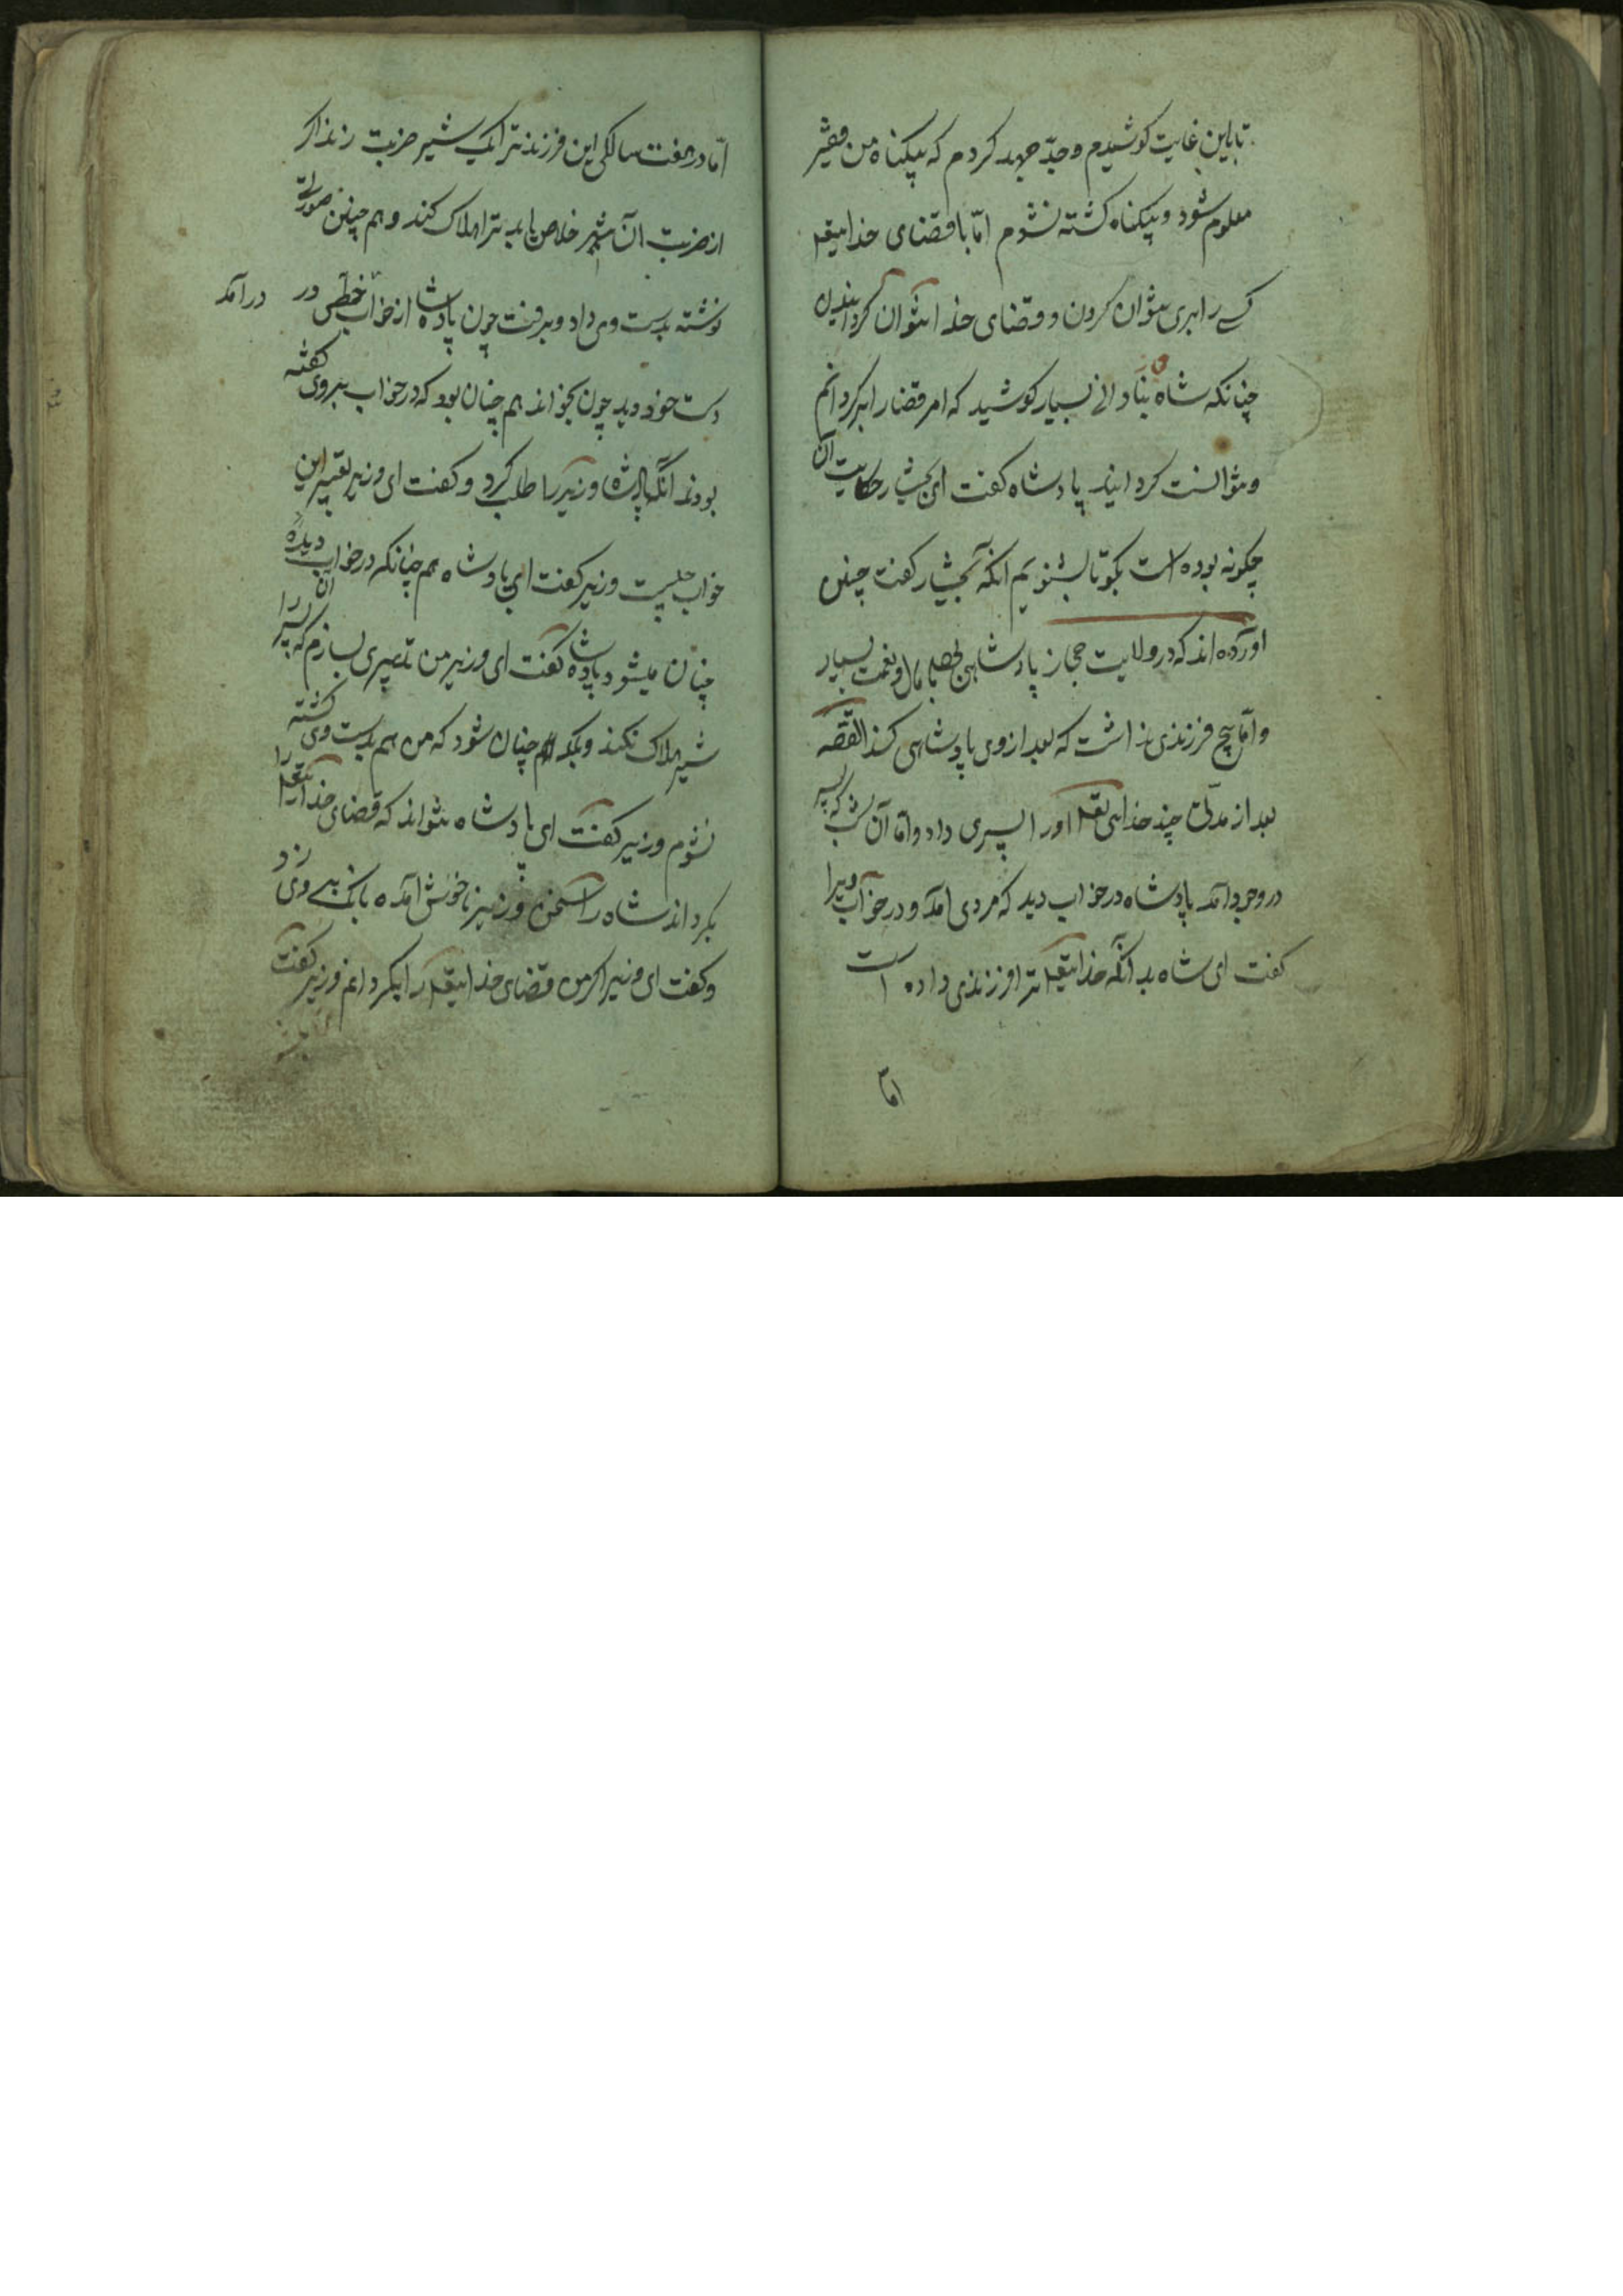 تا باین غایت کوشیدم و جدّ جهد کردم که بیکناه من فقیر
معلوم شود و بیکناه کشته نشوم امّا با قضای خدایتعلی
کسی را بری نتوان کردن و قضای خدا نتوان کردانیدن
چنانکه شاه بنادانی بسیار کوشید که امر قضا را برکردانم
و نتوانست کردانید پادشاه کفت ای بختیار حکایت آن
چکونه بوده است بکو تا بشنویم انکه بختیار کفت چنین
اورده اند که در ولایت حجاز پادشاهی با مال و نعمت بسیار
و امّا هیچ فرزندی نداشت که بعد از وی پادشاهی کند القصّه
بعد از مدتی چند خدای تعلی اورا پسری داد و امّا آن شب که پسر
در وجود آمد پادشاه در خواب دید که مردی آمد و در خواب ویرا
کفت ای شاه بدانکه خدایتعلی ترا فرزندی داده است
امّا
امّا در هفت سالکی این فرزند ترا یک شیر ضربت زند اکر
از ضربت آن شیر خلاص یابد ترا هلاک کند و هم چنین صورتی
نوشته بدست وی داد و برفت چون پادشاه از خواب خطی در
درآمد
دست خود دید چون بخواند هم چنان بود که در خواب بروی کفته
بودند آنکه پادشاه وزیر را طلب کرد و کفت ای وزیر تعبیر این
خواب چیست وزیر کفت ای پادشاه هم چنانکه در خواب دیدهٔ
چنان میشود پادشاه کفت ای وزیر من تدبیری بسازم که آن پسر را
شیر هلاک نکند و بلکه هم چنان شود که من هم بدست وی کشته
نشوم وزیر کفت ای پادشاه نتواند که قضای خدای تعلی را
بکرداند شاه را سخن وزیر ناخوش آمده بانک بر وی زد
و کفت ای وزیر اکر من قضای خدایتعلی را بکردانم وزیر کفت